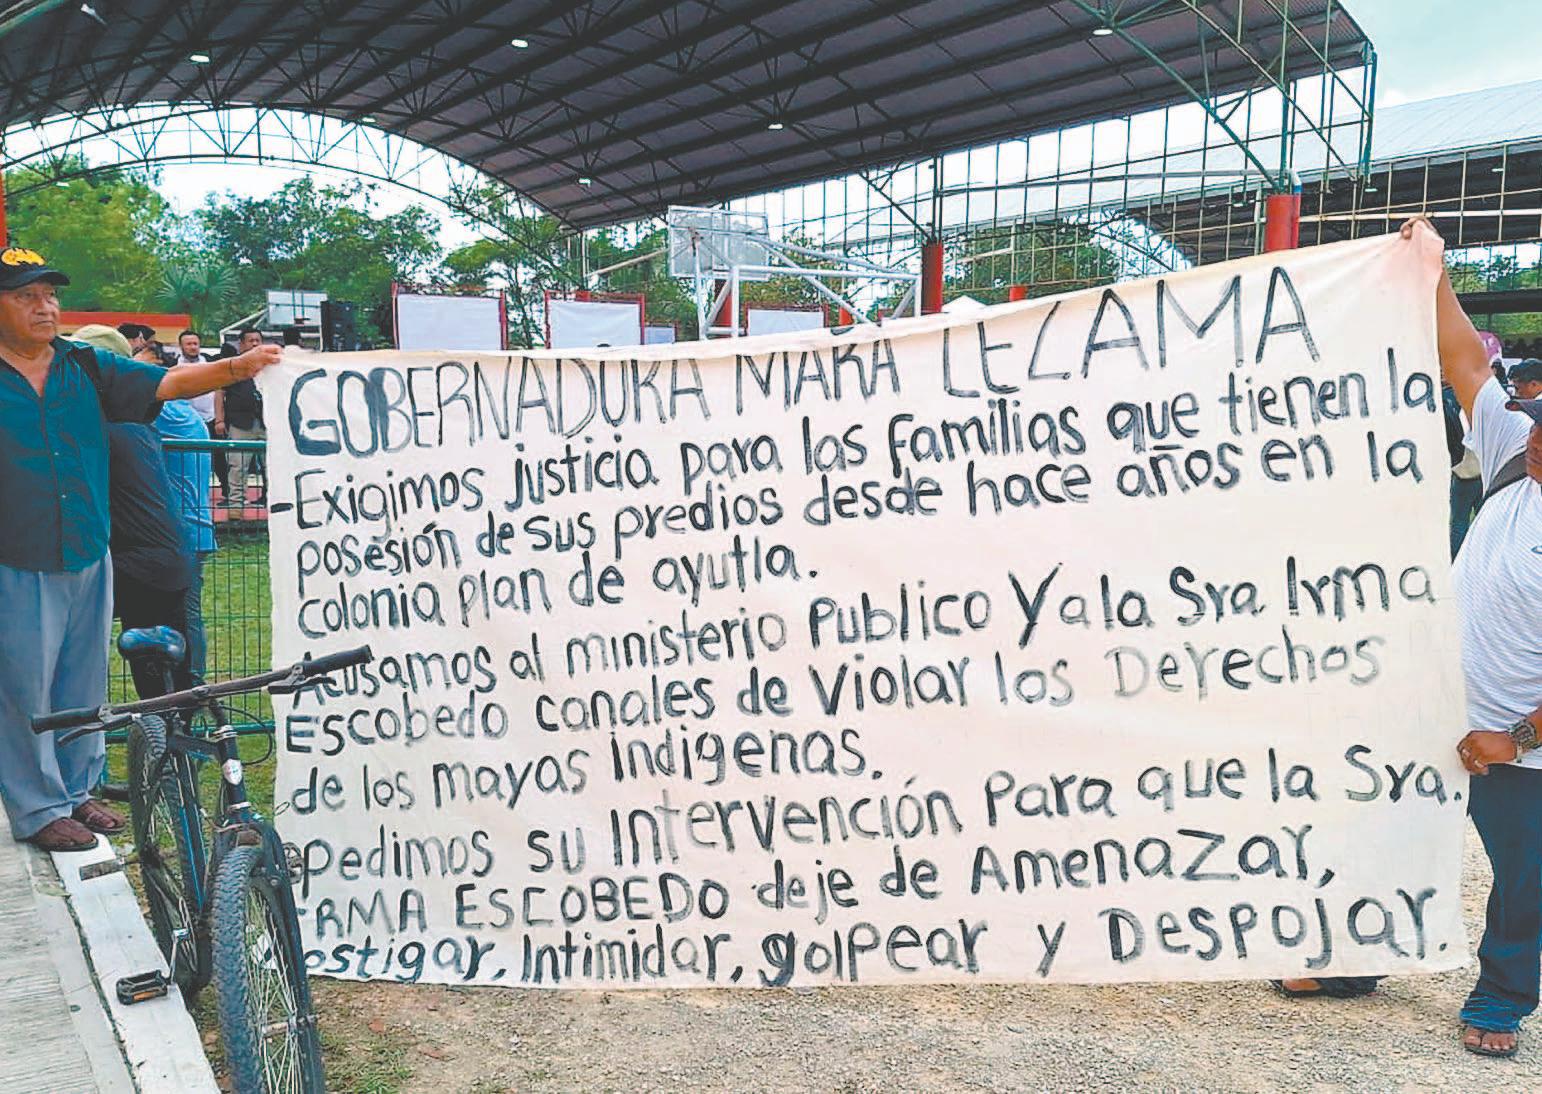 GOBERNADORA MARA LEZAMA
-Exigimos justicia para las familias que tienen la
posesión de sus predios desde hace años en la
colonia plan de ayutla.
Acusamos al ministerio Publico Y a la Sra Irma
ESCOBEDO canales de Violar los Derechos
de los mayas Indigenas.
pedimos su Intervención Para que la Sra.
IRMA ESCOBEDO deje de AmenaZar,
ostigar, Intimidar, golpear y Despojar.